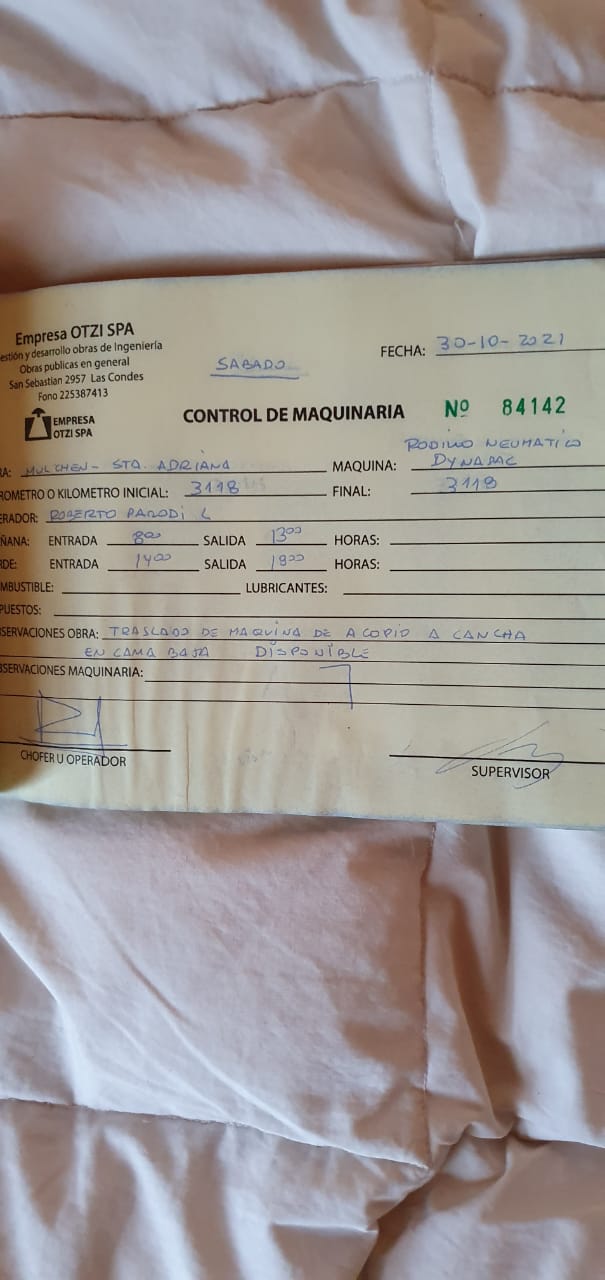 Empresa OTZI SPA
estión y desarrollo obras de Ingeniería
Obras publicas en general
San Sebastian 2957 Las Condes
Fono 225387413
EMPRESA
OTZI SPA
SABADO
FECHA: 30-10-2021
CONTROL DE MAQUINARIA Nº 84142
RA: MULCHEN - STA. ADRIANA MAQUINA: RODILLO NEUMATICO
DYNAPAC
ROMETRO O KILOMETRO INICIAL: 3118 FINAL: 3118
ERADOR: ROBERTO PARODI L
ÑANA: ENTRADA 8:00 SALIDA 13:00 HORAS:
RDE: ENTRADA 14:00 SALIDA 18:00 HORAS:
MBUSTIBLE: LUBRICANTES:
PUESTOS:
SERVACIONES OBRA: TRASLADO DE MAQUINA DE ACOPIO A CANCHA
EN CAMA BAJA DISPONIBLE
SERVACIONES MAQUINARIA:
CHOFER U OPERADOR
SUPERVISOR